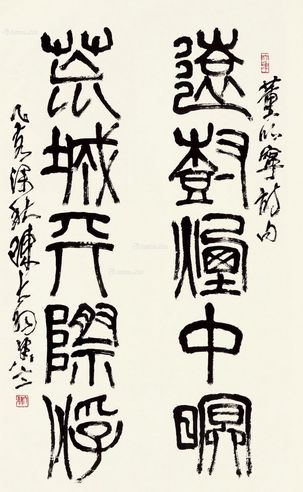 董寧詩句
遠樹煙中暝
荒城天際浮
乙亥深秋陳大羽